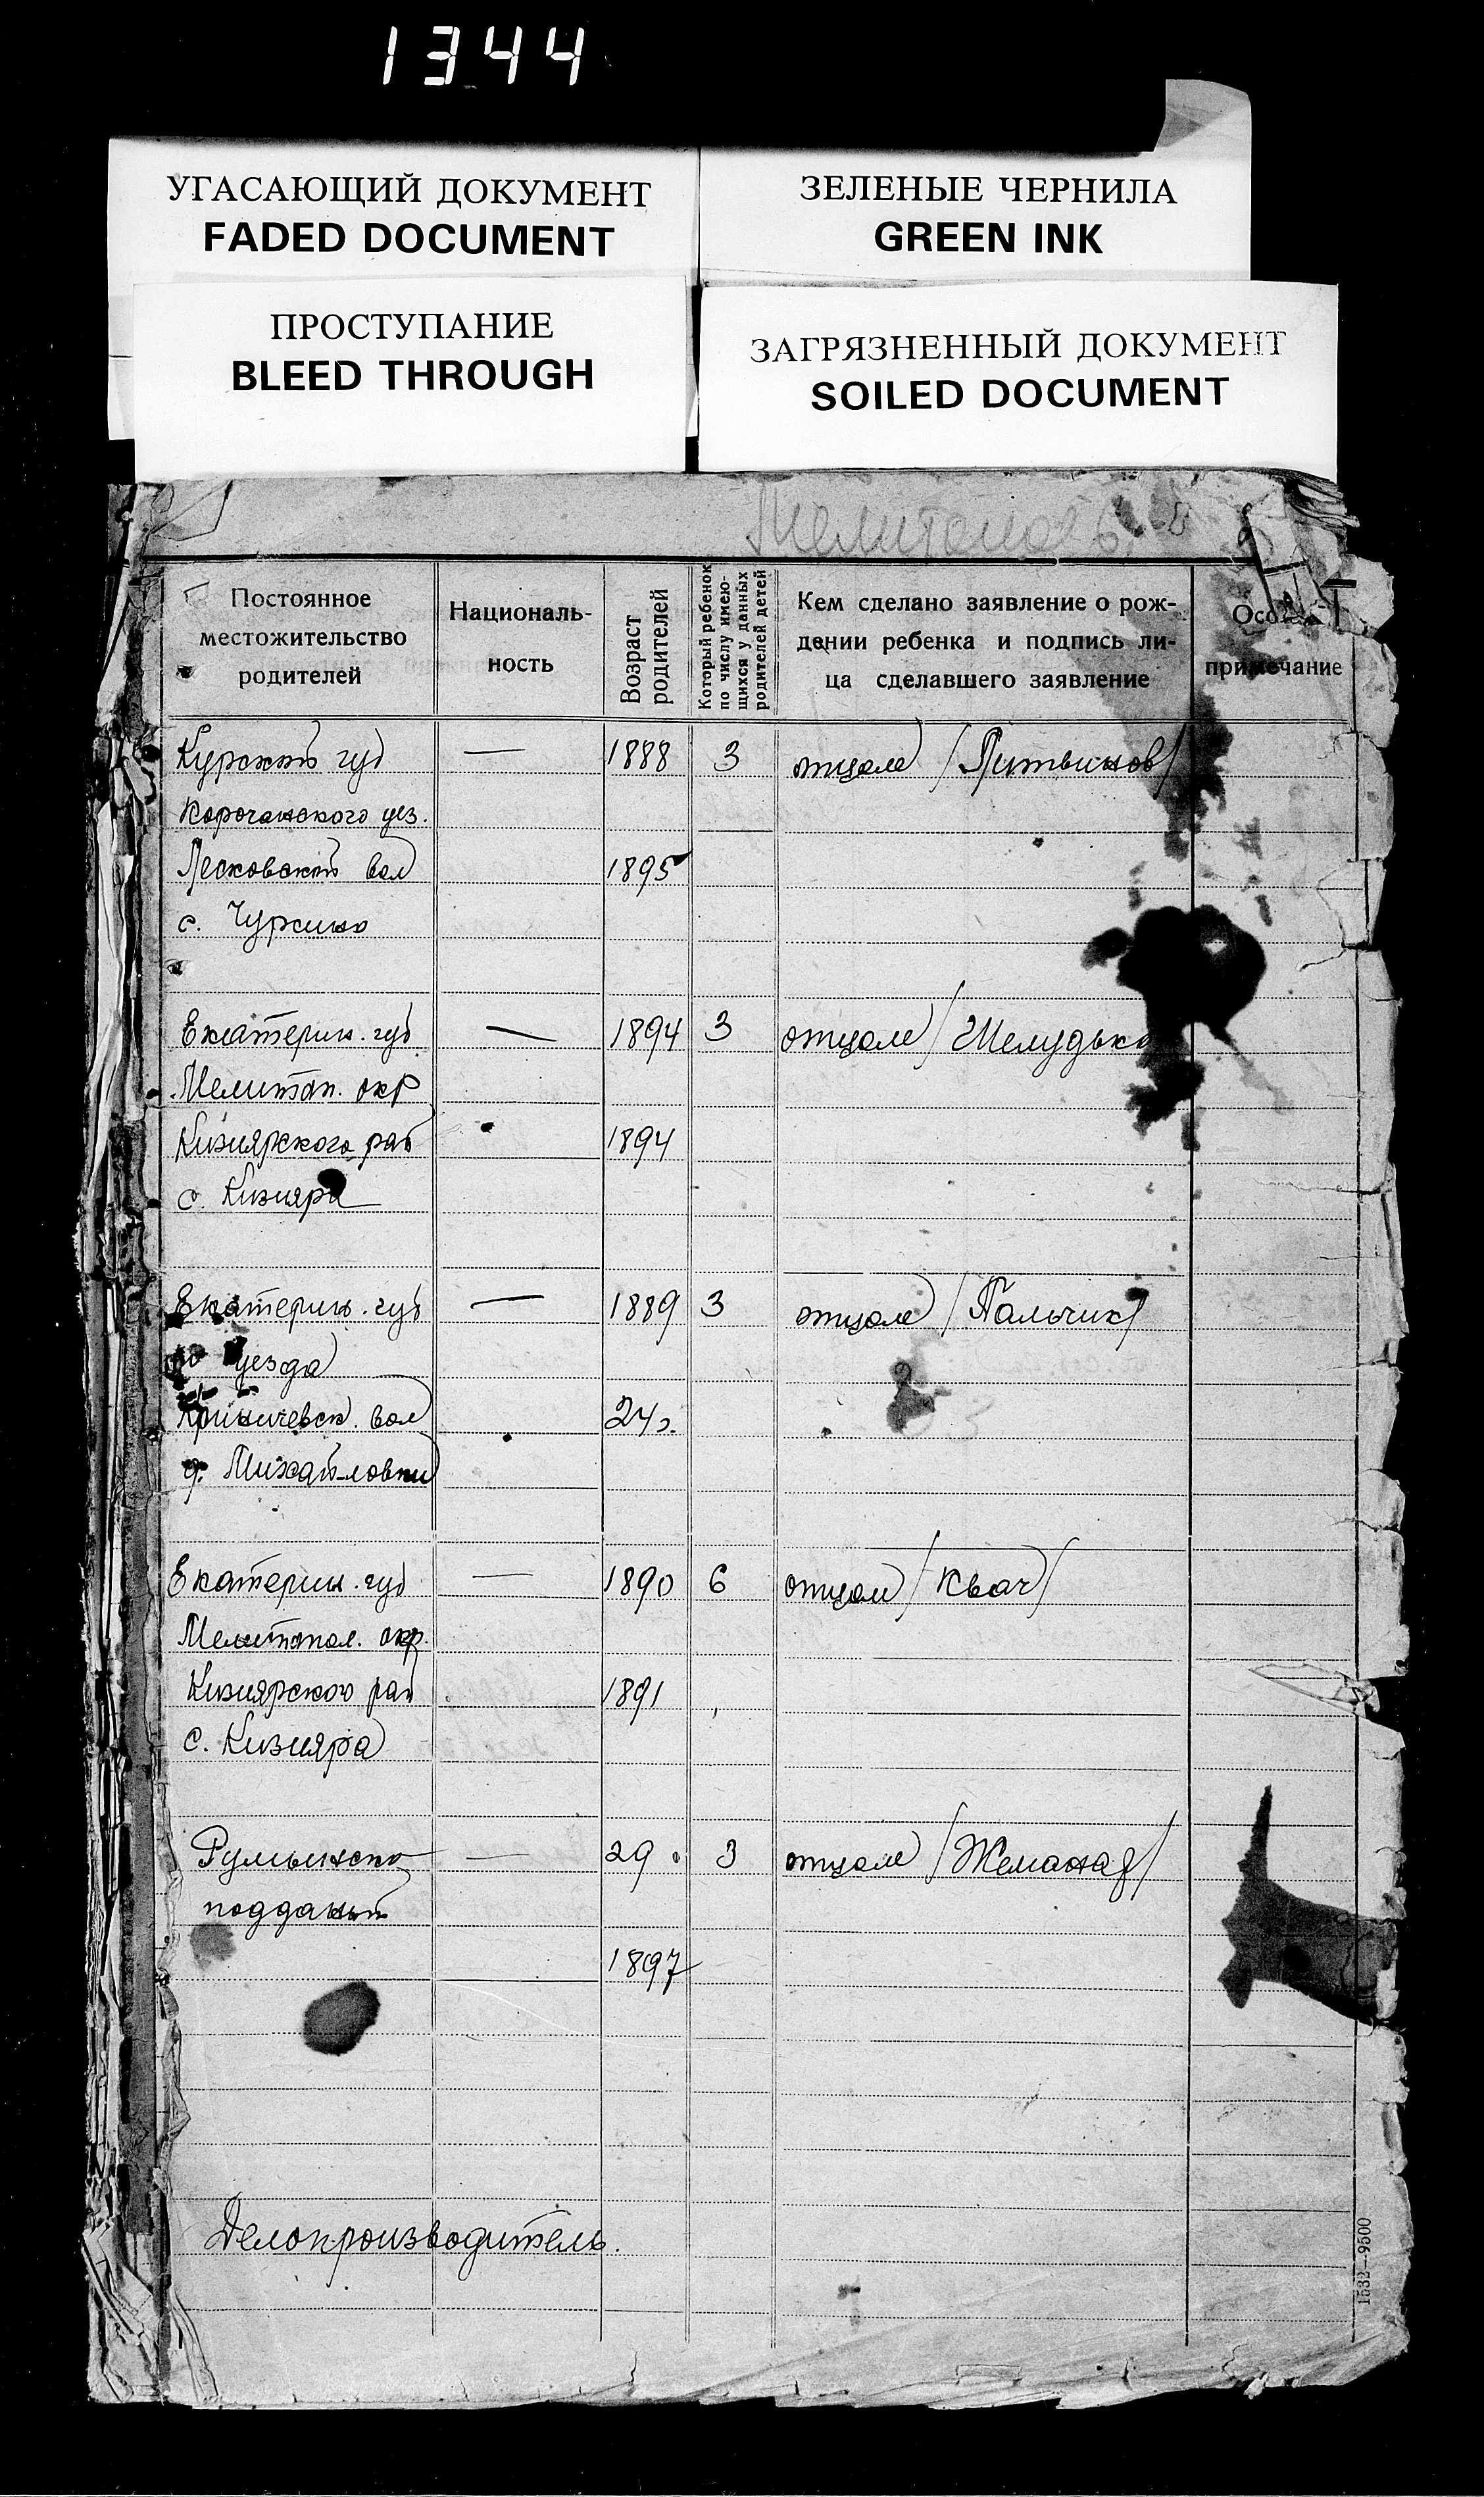 1344
УГАСАЮЩИЙ ДОКУМЕНТ
FADED DOCUMENT
ЗЕЛЕНЫЕ ЧЕРНИЛА
GREEN INK
ПРОСТУПАНИЕ
BLEED THROUGH
ЗАГРЯЗНЕННЫЙ ДОКУМЕНТ
SOILED DOCUMENT
Постоянное
местожительство
родителей
Националь-
ность
Возраст
родителей
Который ребенок
по числу имею-
щихся у данных
родителей детей
Кем сделано заявление о рож-
дении ребенка и подпись ли-
ца сделавшего заявление
примечание
Курской губ — 1888 3 отцом /Литвинов/
Корочанского уез.
Лесковской вол 1895
с. Чурсино
Екатерин. губ — 1894 3 отцом /Шелудько
Мелитоп. окр
Кизиярского рай 1894
с. Кизияра
Екатерин. губ — 1889 3 отцом /Пальчик/
уезда
Криничевск. вол 24 г.
д. Михайловки
Екатерин. губ — 1890 6 отцом /Квач/
Мелитопол. окр.
Кизиярского рай 1891
с. Кизияра
Румынско — 29 3 отцом /Жеманар/
подданый
1897
Делопроизводитель.
1532—9500